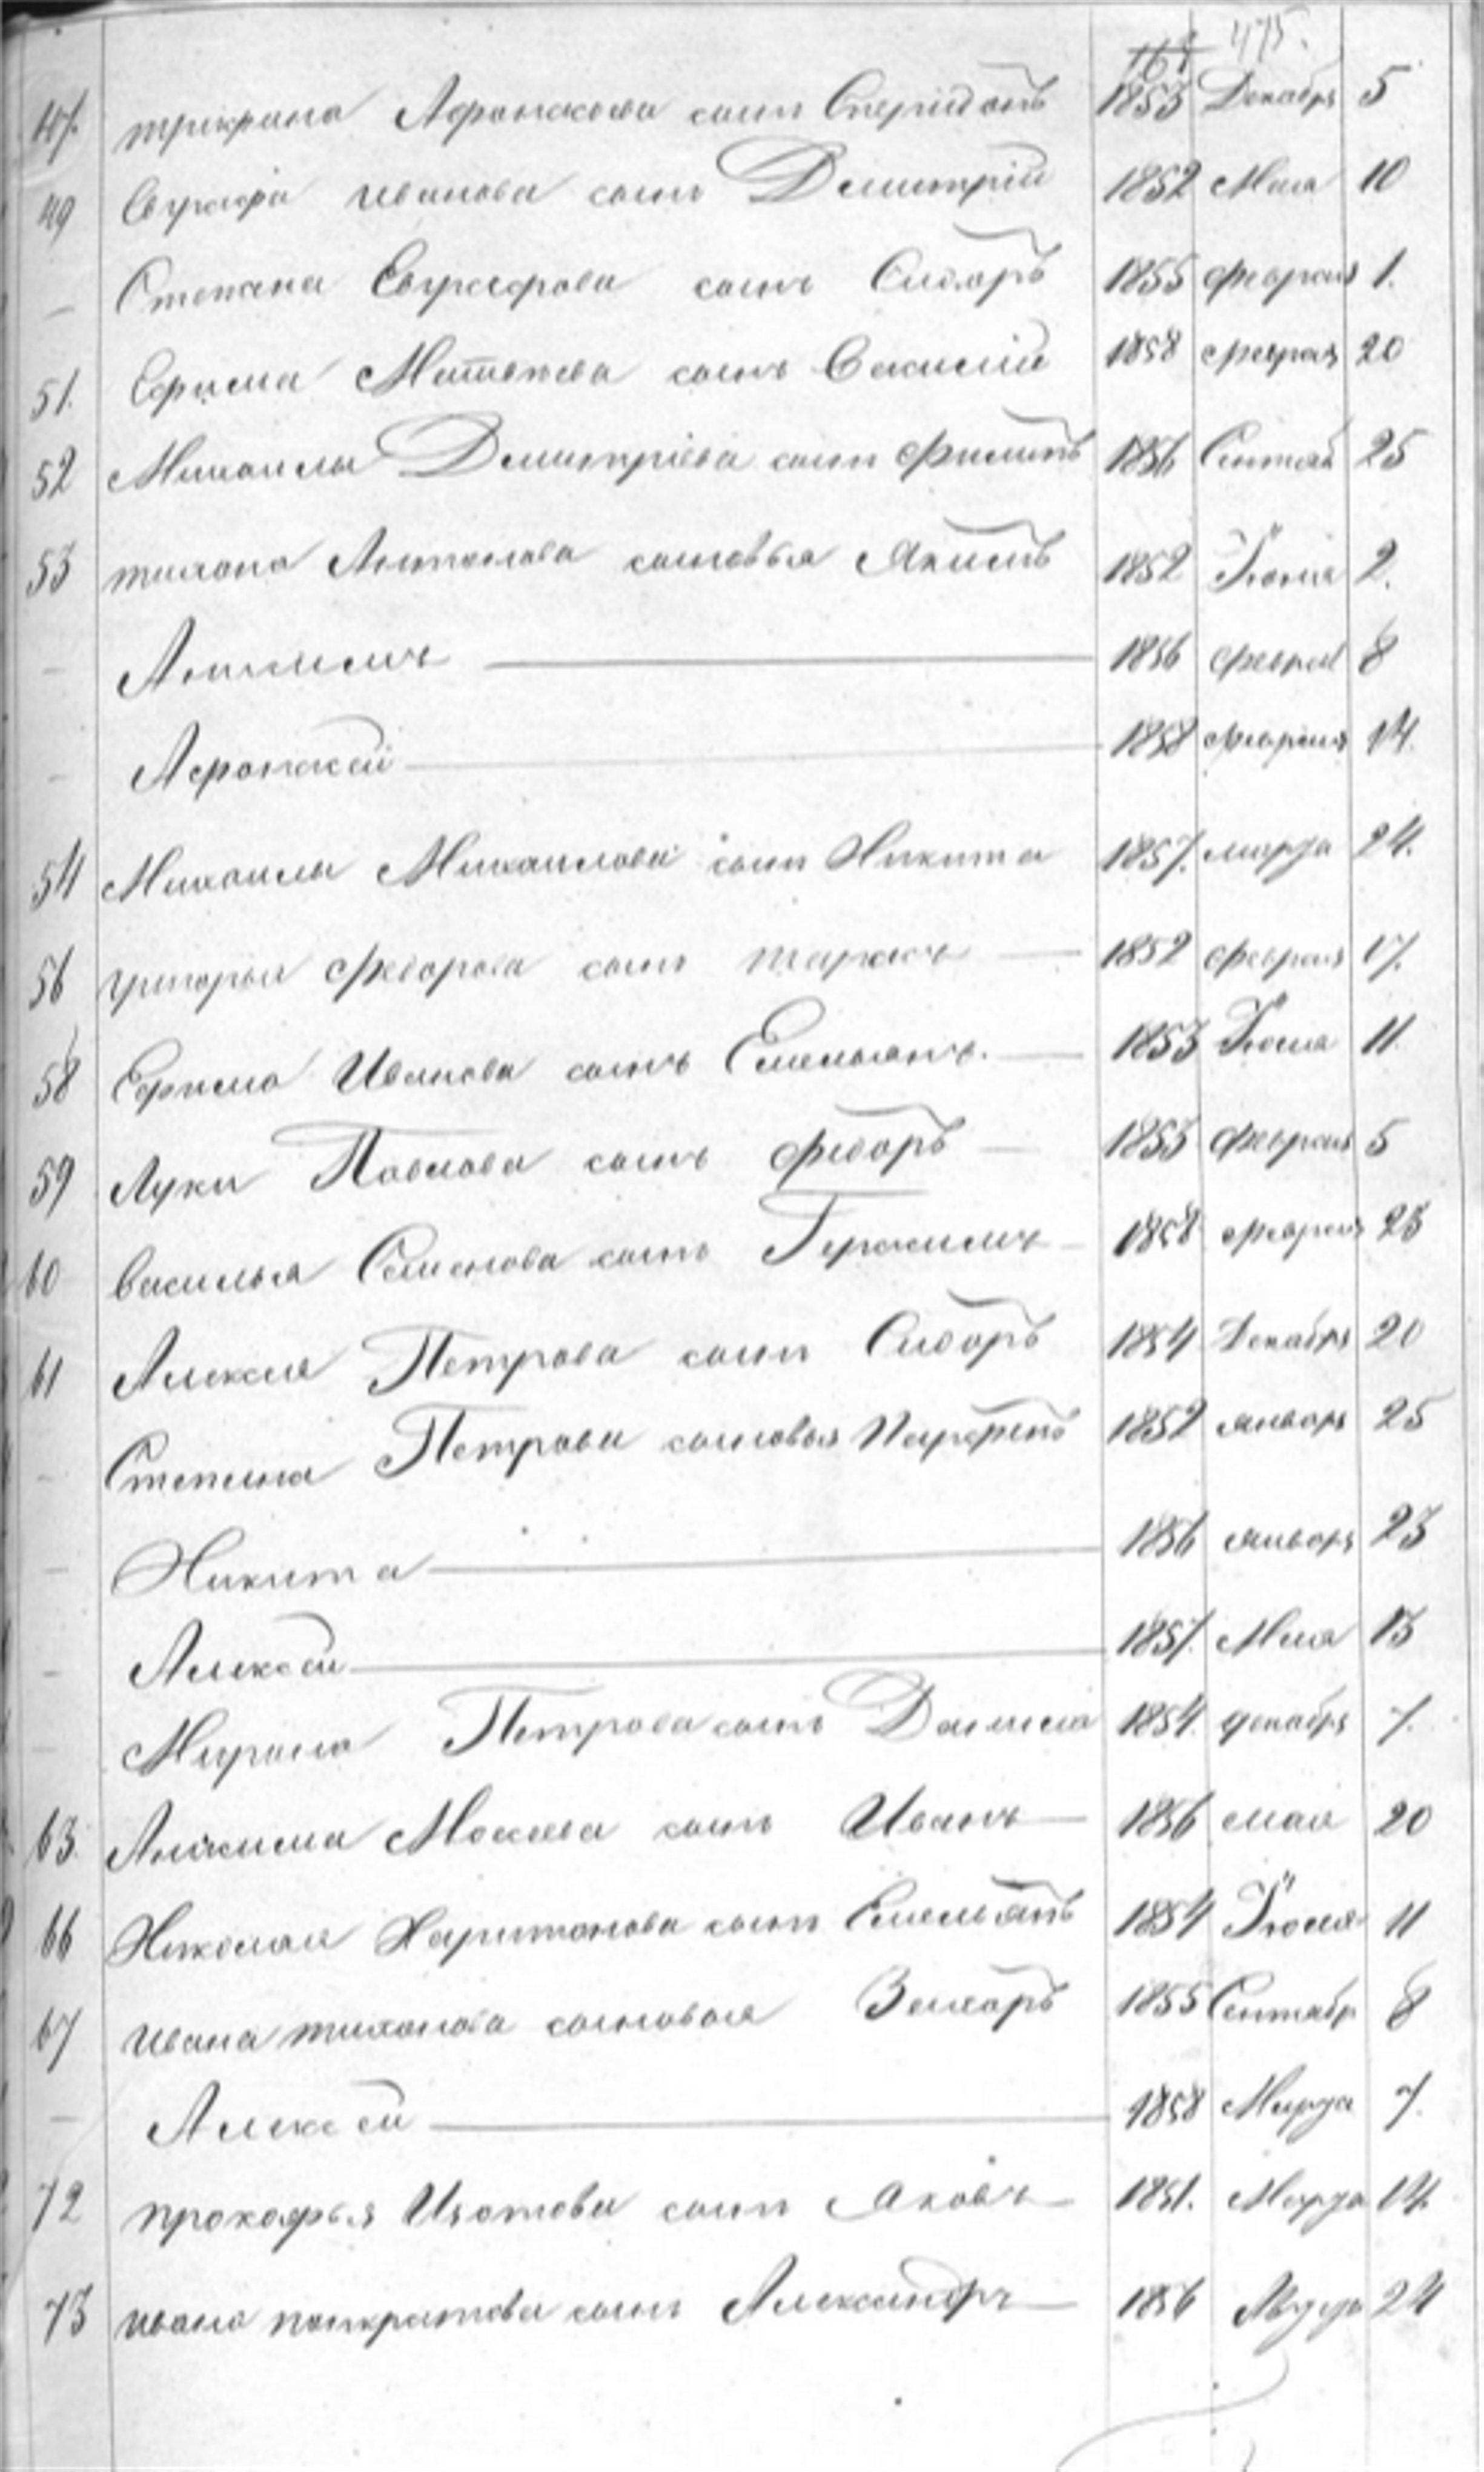 475.
47. трифона Афонасьева сынъ Спиридонъ 1853 Декабря 5
49 Евграфа Иванова сынъ Дмитрій 1852 Мая 10
— Степана Евграфова сынъ Сидоръ 1855 февраля 1.
51. Ефима Матвѣева сынъ Василій 1858 февраля 20
52 Михаилы Дмитріева сынъ Филипъ 1856 Сентяб 25
53 тихона Антонова сыновья Якимъ 1852 Іюня 2.
— 1856 феврал 8
— Афонасей 1858 февраля 14.
54 Михаилы Михаилова сынъ Никита 1857. марта 24.
56 григорья Федорова сынъ тарасъ — 1852 февраля 17.
58 Ефима Иванова сынъ Емельянъ. — 1853 11.
59 Луки Павлова сынъ федоръ — 1853 февраля 5
60 Василья Семенова сынъ Герасимъ — 1858 февраля 23
61 Алексея Петрова сынъ Сидоръ 1854 Декабря 20
— Степана Петрова сыновья Парфенъ 1852 января 25
— Никита 1856 января 23
— Алексей 1857. Мая 13
— Мирона Петрова сынъ Данила 1854. декабря 7.
63. Анисима Мосеева сынъ Иванъ — 1856 мая 20
66 Николая Харитонова сынъ Емельянъ 1854 11
67 Ивана тихонова сыновья Захаръ 1855 Сентябр 8
— Алексей 1858 Марта 7.
72 прокофья Изотова сынъ Яковъ — 1851. Марта 14.
73 ивана панкратова сынъ Александръ — 1856 24